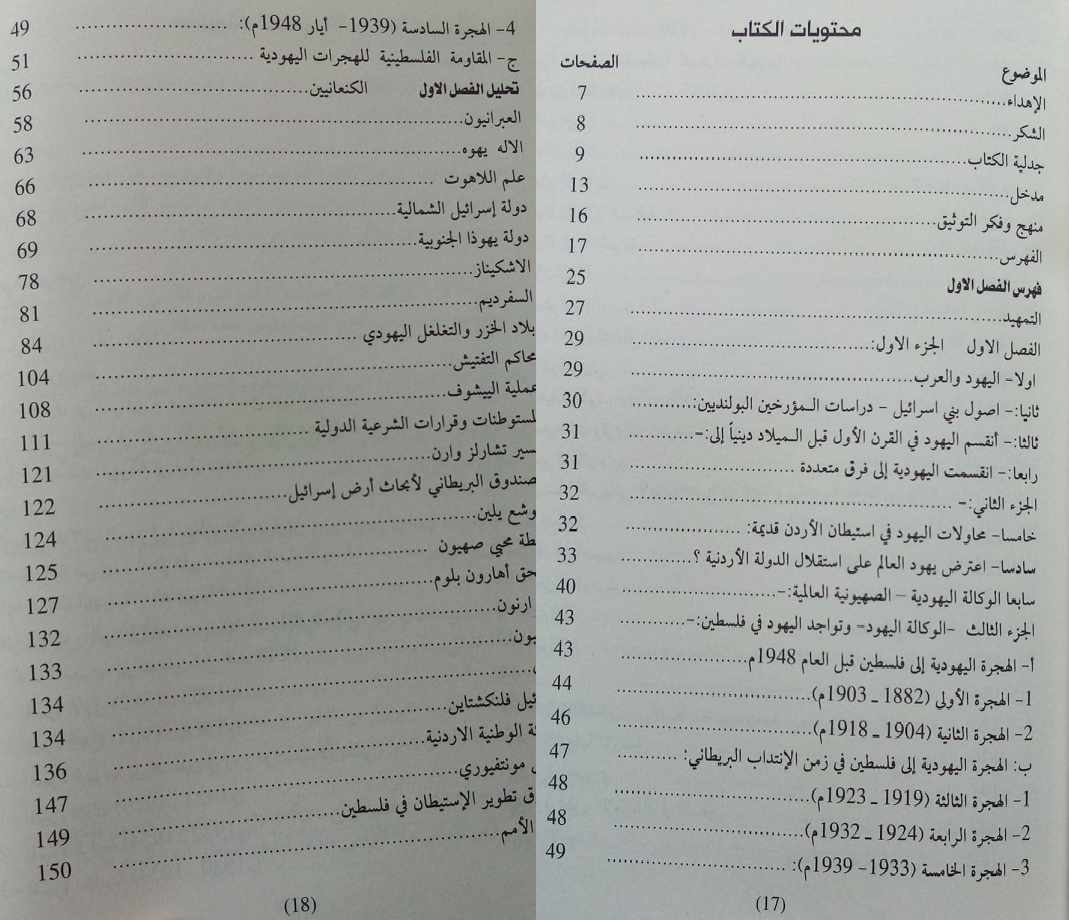 محتويات الكتاب
الموضوع الصفحات
الإهداء 7
الشكر 8
جدلية الكتاب 9
مدخل 13
منهج وفكر التوثيق 16
الفهرس 17
فهرس الفصل الاول 25
التمهيد 27
الفصل الاول الجزء الاول: 29
اولا- اليهود والعرب 29
ثانيا:- اصول بني اسرائيل - دراسات المؤرخين البولنديين: 30
ثالثا:- أنقسم اليهود في القرن الأول قبل الميلاد دينياً إلى:- 31
رابعا:- انقسمت اليهودية إلى فرق متعددة 31
الجزء الثاني:- 32
خامسا- محاولات اليهود في استيطان الأردن قديمة: 32
سادسا- اعترض يهود العالم على استقلال الدولة الأردنية ؟ 33
سابعا الوكالة اليهودية – الصهيونية العالمية:- 40
الجزء الثالث -الوكالة اليهود- وتواجد اليهود في فلسطين:- 43
أ- الهجرة اليهودية إلى فلسطين قبل العام 1948م 43
1- الهجرة الأولى (1882 ـ 1903م) 44
2- الهجرة الثانية (1904 ـ 1918م) 46
ب: الهجرة اليهودية إلى فلسطين في زمن الإنتداب البريطاني: 47
1- الهجرة الثالثة (1919 ـ 1923م) 48
2- الهجرة الرابعة (1924 ـ 1932م) 48
3- الهجرة الخامسة (1933- 1939م): 49
(17)
4- الهجرة السادسة (1939- أيار 1948م): 49
ج- المقاومة الفلسطينية للهجرات اليهودية 51
تحليل الفصل الاول الكنعانيين 56
العبرانيون 58
الاله يهوه 63
علم اللاهوت 66
دولة إسرائيل الشمالية 68
دولة يهوذا الجنوبية 69
الاشكيناز 78
السفرديم 81
بلاد الخزر والتغلغل اليهودي 84
محاكم التفتيش 104
عملية الييشوف 108
لمستوطنات وقرارات الشرعية الدولية 111
سير تشارلز وارن 121
صندوق البريطاني لأبحاث أرض إسرائيل 122
وشع يلين 124
طة محبي صهيون 125
حق أهارون بلوم 127
ارنون 132
يون 133
134
ئيل فلنكشتاين 134
ة الوطنية الاردنية 136
مونتفيوري 147
ق تطوير الإستيطان في فلسطين 149
الأمم 150
(18)